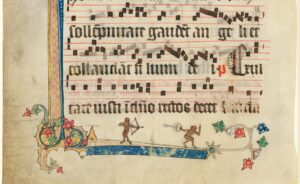 sollẽpnitate gaudent an ge li et
collaudant fi lium de i p̄ Exul
tate iusti i dño rectos decet